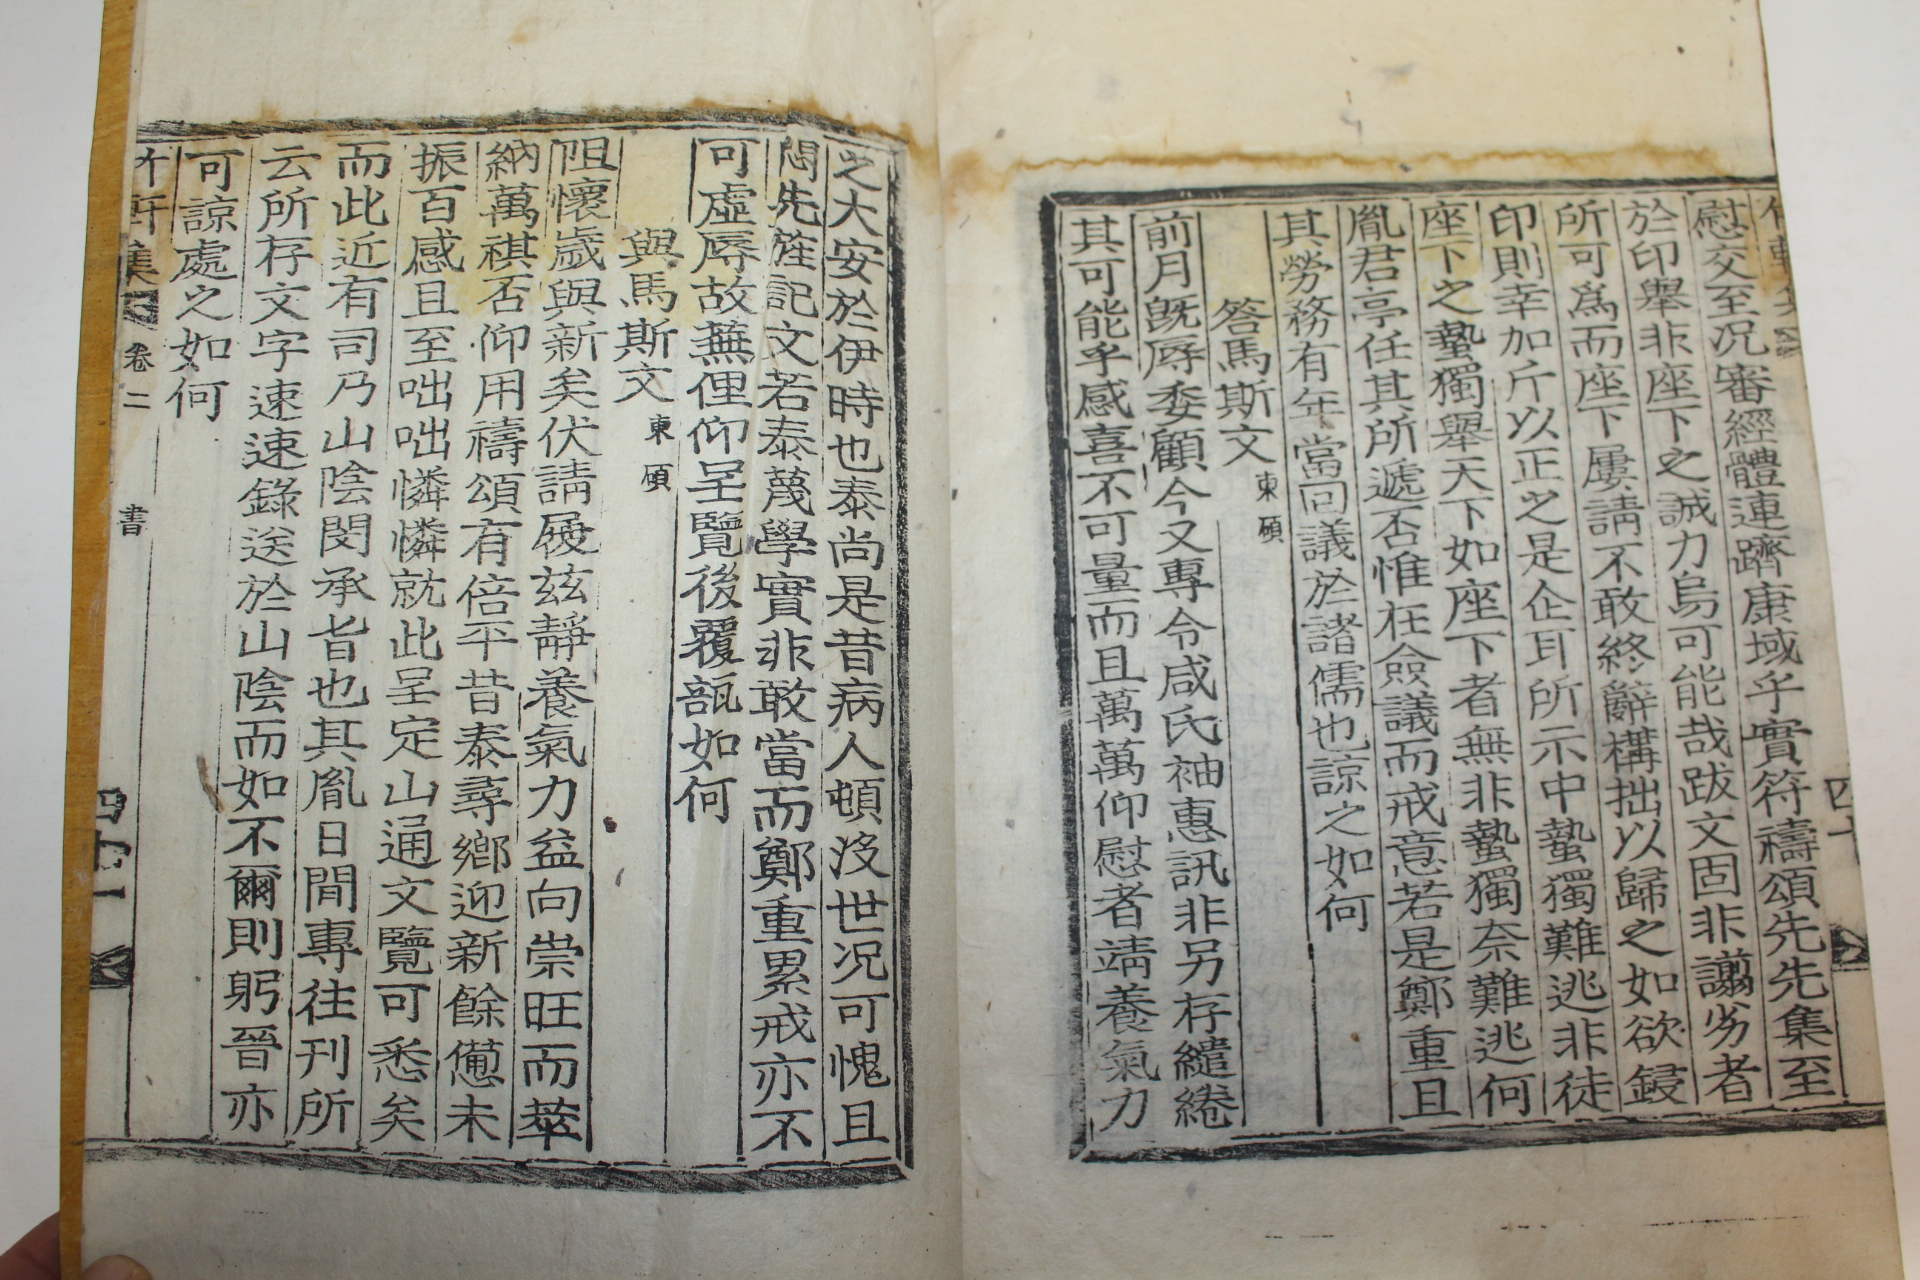 慰交至况審經體連躋康域乎實符禱頌先先集至
於印舉非座下之誠力烏可能哉跋文固非謭劣者
所可爲而座下屢請不敢終辭構拙以歸之如欲鋟
印則幸加斤以正之是企耳所示中蟄獨難逃非徒
座下之蟄獨舉天下如座下者無非蟄獨奈難逃何
胤君亭任其所遞否惟在僉議而戒意若是鄭重且
其勞務有年當回議於諸儒也諒之如何
答馬斯文 東碩
前月旣辱委顧今又專令咸氏袖惠訊非另存繾綣
其可能乎感喜不可量而且萬萬仰慰者靖養氣力
之大安於伊時也泰尚是昔病人頓没世况可愧且
先旌記文若泰蔑學實非敢當而鄭重累戒亦不
可虛辱故蕪俚仰呈覽後覆瓿如何
與馬斯文 東碩
阻懷歲與新矣伏請履玆靜養氣力益向崇旺而萃
納萬祺否仰用禱頌有倍平昔泰尋鄉迎新餘憊未
振百感且至咄咄憐憐就此呈定山通文覽可悉矣
而此近有司乃山陰閔承旨也其胤日間專往刊所
云所存文字速速錄送於山陰而如不爾則躬晉亦
可諒處之如何
軒集 卷二 書 四十一